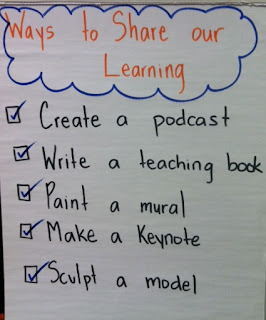 Ways to Share our
Learning
Create a podcast
Write a teaching book
Paint a mural
Make a Keynote
Sculpt a model